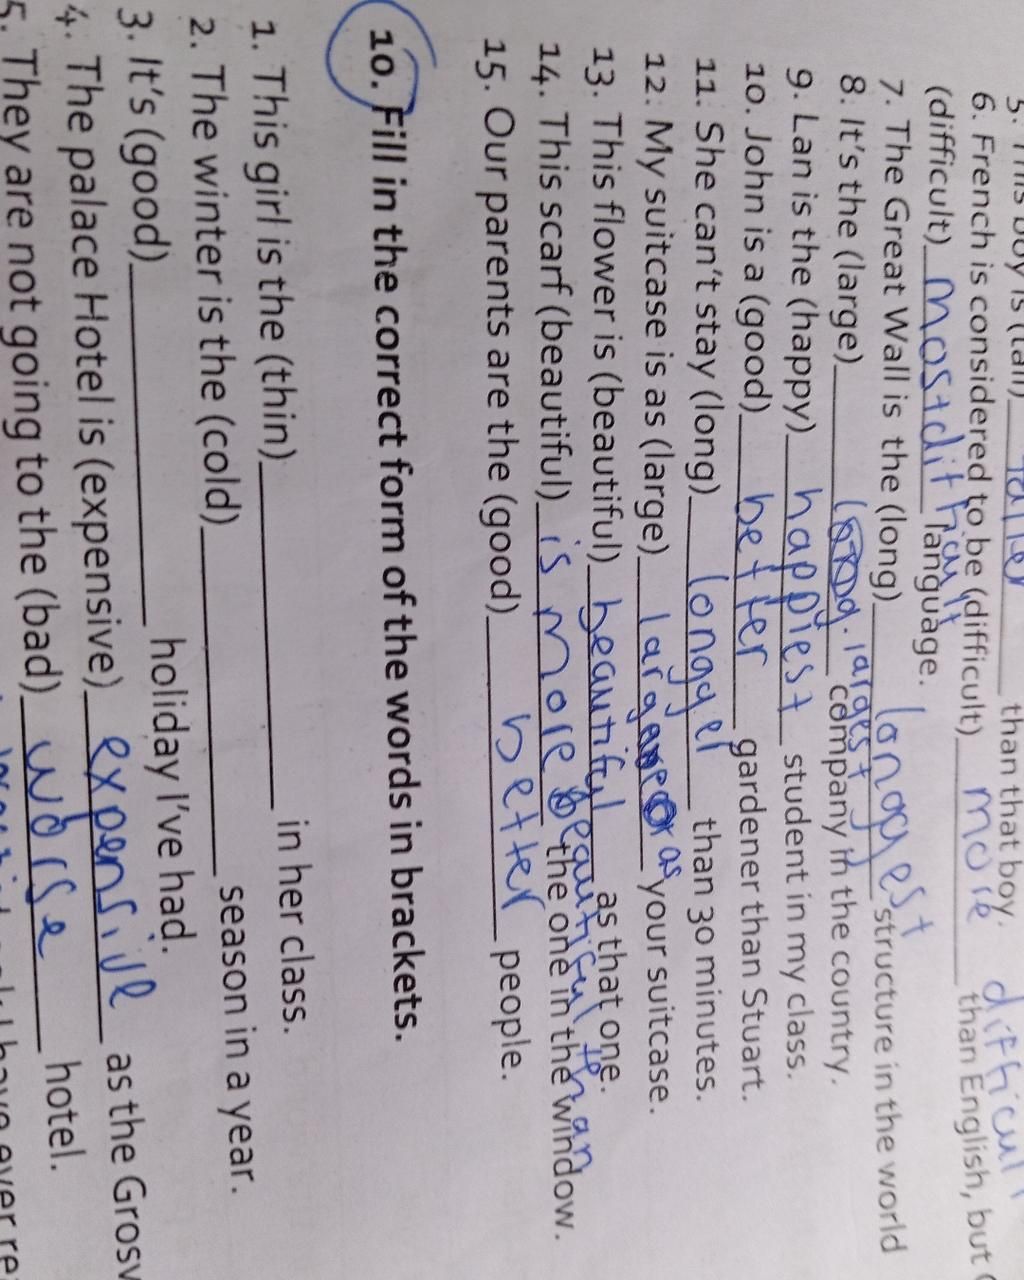 5. This boy is (tall) taller than that boy.
6. French is considered to be (difficult) more difficult than English, but
(difficult) most difficult language.
7. The Great Wall is the (long) longgest structure in the world
8. It's the (large) largest company in the country.
9. Lan is the (happy) happiest student in my class.
10. John is a (good) better gardener than Stuart.
11. She can't stay (long) longger than 30 minutes.
12. My suitcase is as (large) large as your suitcase.
13. This flower is (beautiful) beautiful as that one.
14. This scarf (beautiful) is more beautiful than the one in the window.
15. Our parents are the (good) better people.
10. Fill in the correct form of the words in brackets.
1. This girl is the (thin) in her class.
2. The winter is the (cold) season in a year.
3. It's (good) holiday I've had.
4. The palace Hotel is (expensive) expensive as the
5. They are not going to the (bad) worse hotel.